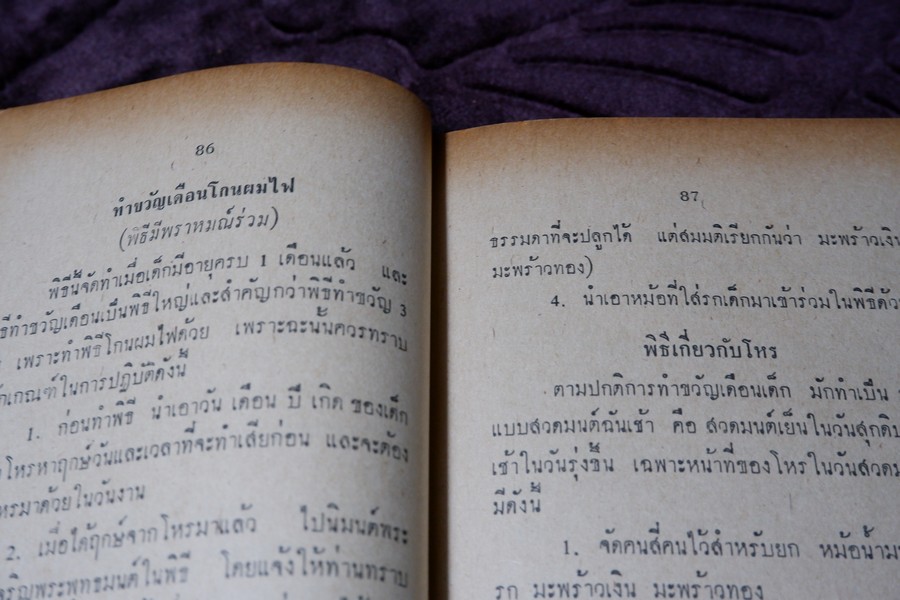 86
ทำขวัญเดือนโกนผมไฟ
(พิธีมีพราหมณ์ร่วม)
พิธีนี้จัดทำเมื่อเด็กมีอายุครบ 1 เดือนแล้ว และ
ทำขวัญเดือนเป็นพิธีใหญ่และสำคัญกว่าพิธีทำขวัญ 3
เพราะทำพิธีโกนผมไฟด้วย เพราะฉะนั้นควรทราบ
เกณฑ์ในการปฏิบัติดังนี้
1. ก่อนทำพิธี นำเอาวัน เดือน ปี เกิด ของเด็ก
โหรหาฤกษ์วันและเวลาที่จะทำเสียก่อน และจะต้อง
มาด้วยในวันงาน
2. เมื่อได้ฤกษ์จากโหรมาแล้ว ไปนิมนต์พระ
เจริญพระพุทธมนต์ในพิธี โดยแจ้งให้ท่านทราบ
87
ธรรมดาที่จะปลูกได้ แต่สมมติเรียกกันว่า มะพร้าวเงิน
มะพร้าวทอง)
4. นำเอาหม้อที่ใส่รกเด็กมาเข้าร่วมในพิธีด้วย
พิธีเกี่ยวกับโหร
ตามปกติการทำขวัญเดือนเด็ก มักทำเป็น
แบบสวดมนต์ฉันเช้า คือ สวดมนต์เย็นในวันสุกดิบ
เช้าในวันรุ่งขึ้น เฉพาะหน้าที่ของโหรในวันสวดม
มีดังนี้
1. จัดคนสี่คนไว้สำหรับยก หม้อน้ำม
รก มะพร้าวเงิน มะพร้าวทอง